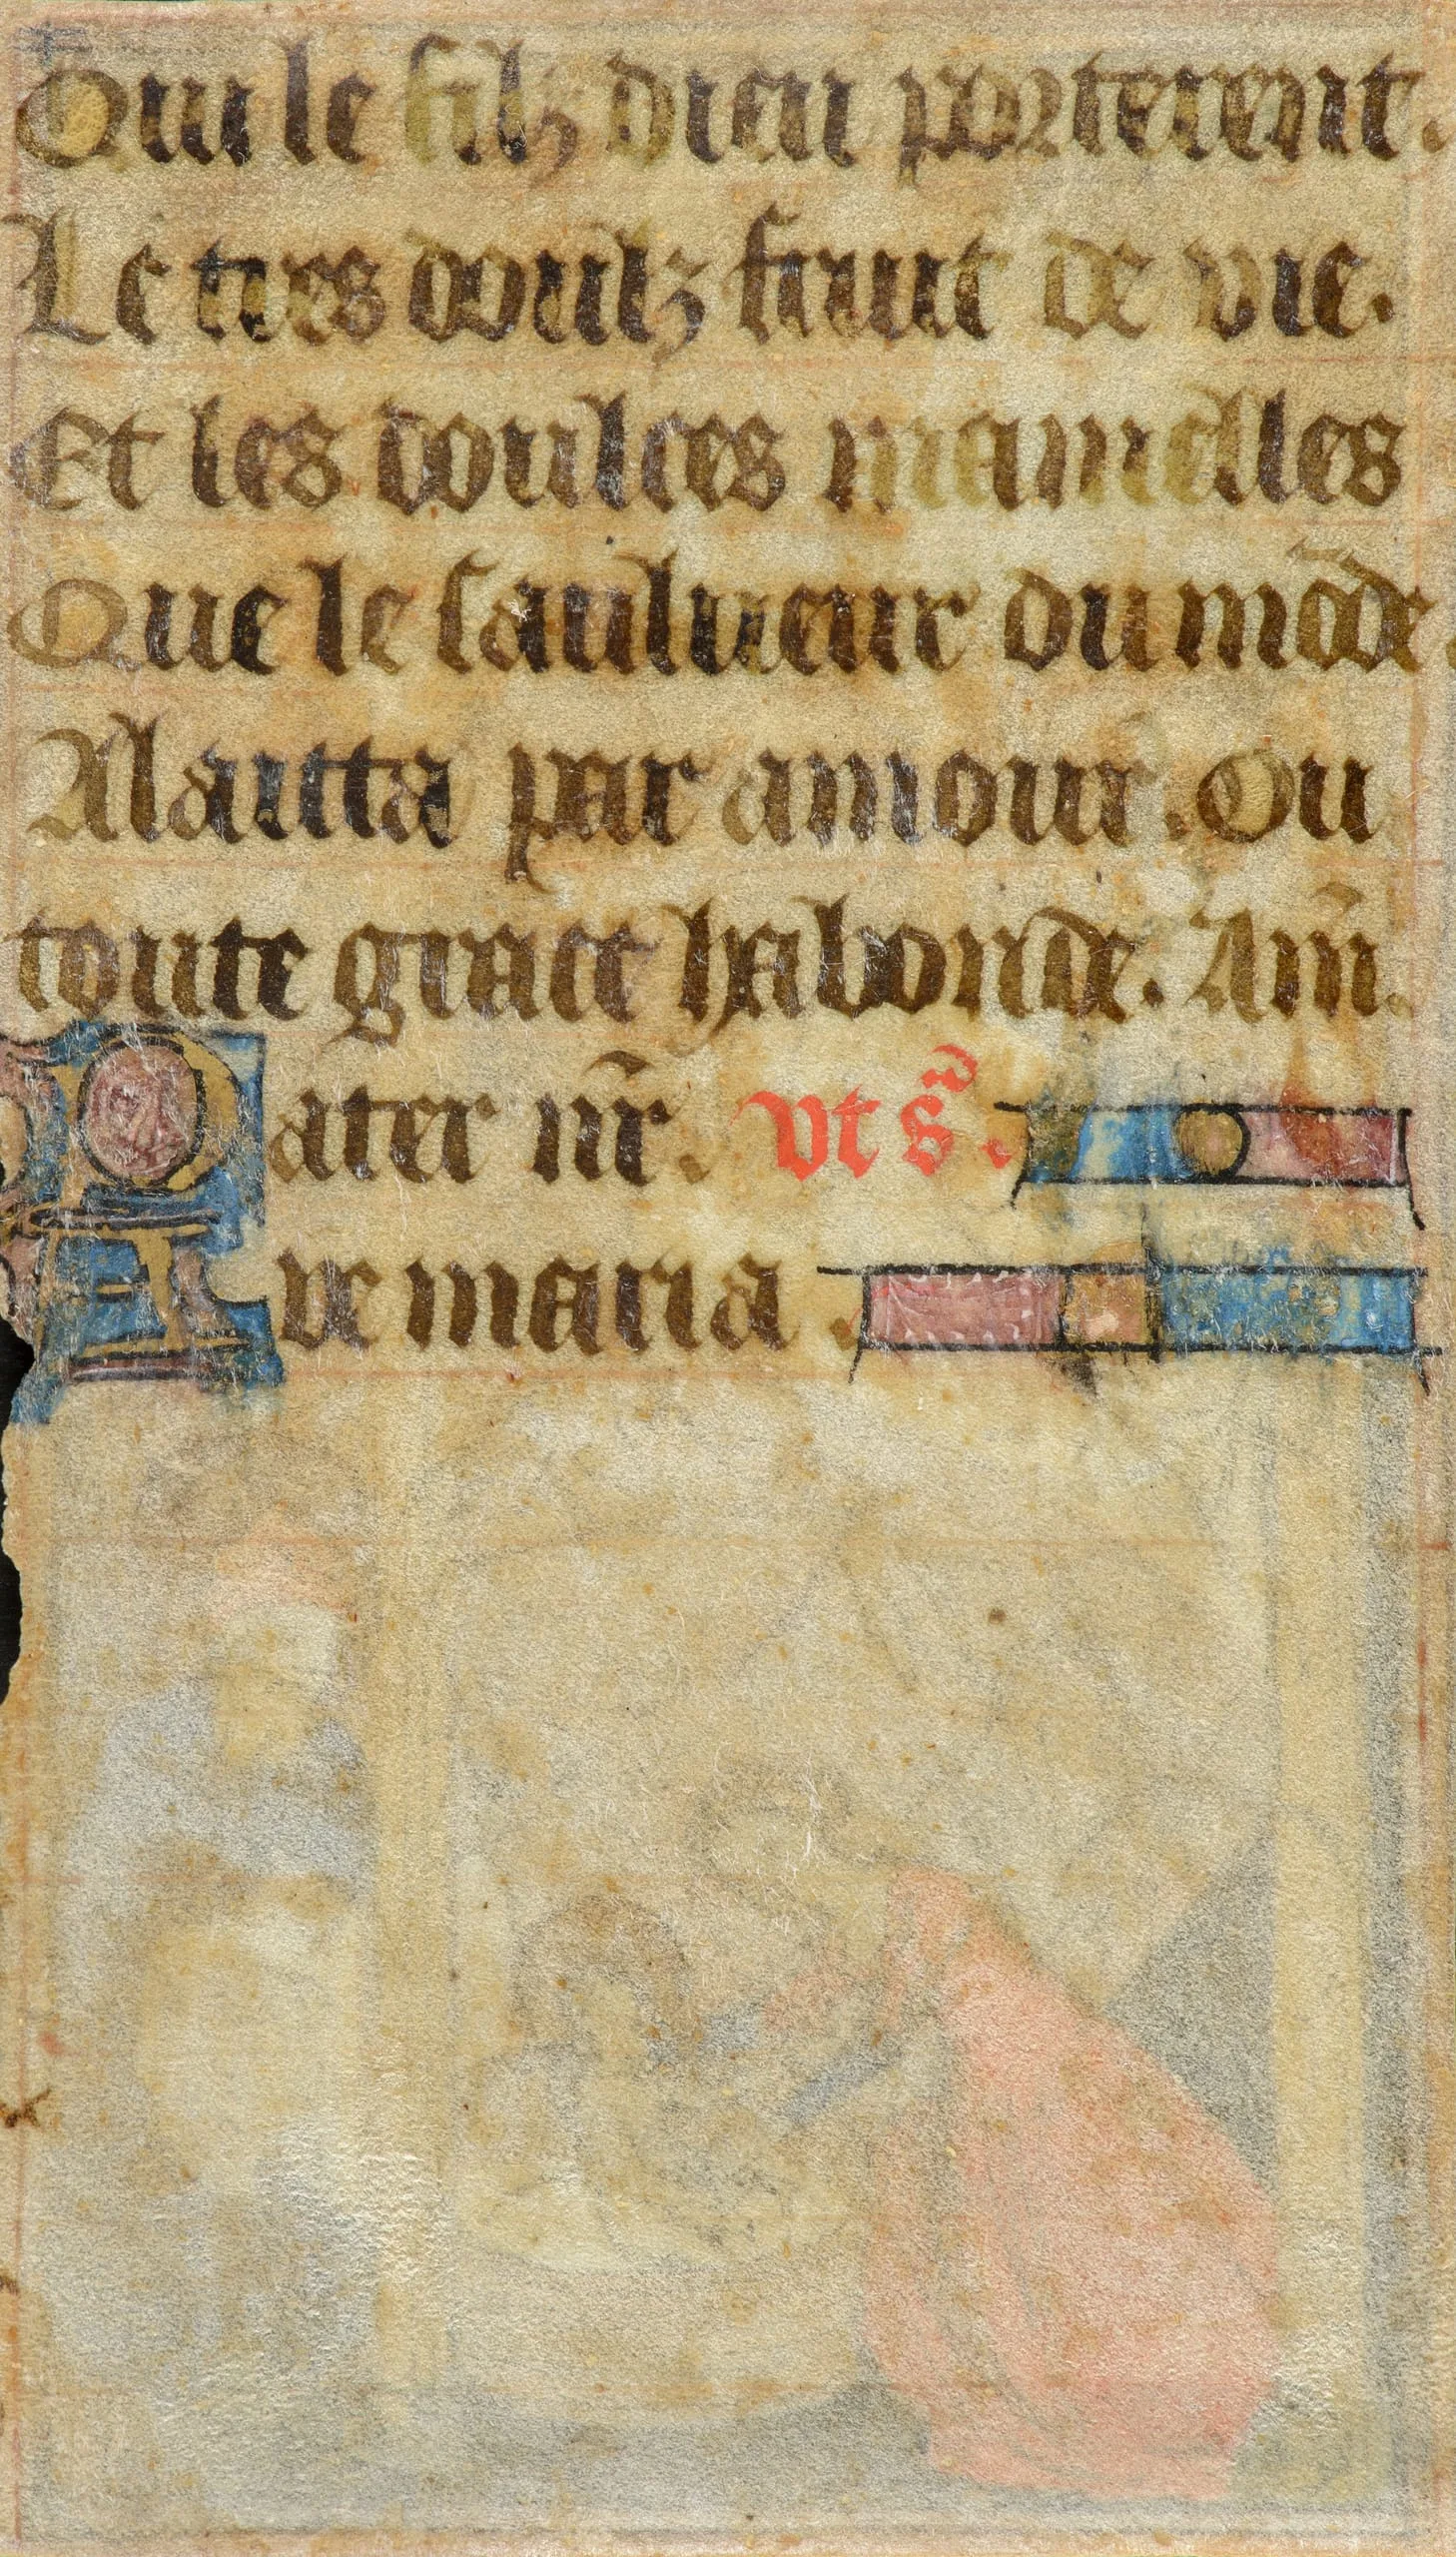 Qui le filz dieu porterent.
Le tres doulz fruit de vie.
Et les doulces mamelles
Que le saulueur du mõde
Alaitta par amour. Ou
toute grace habonde. Am̃.
Pater nr̃. vt s̃.
Aue maria.